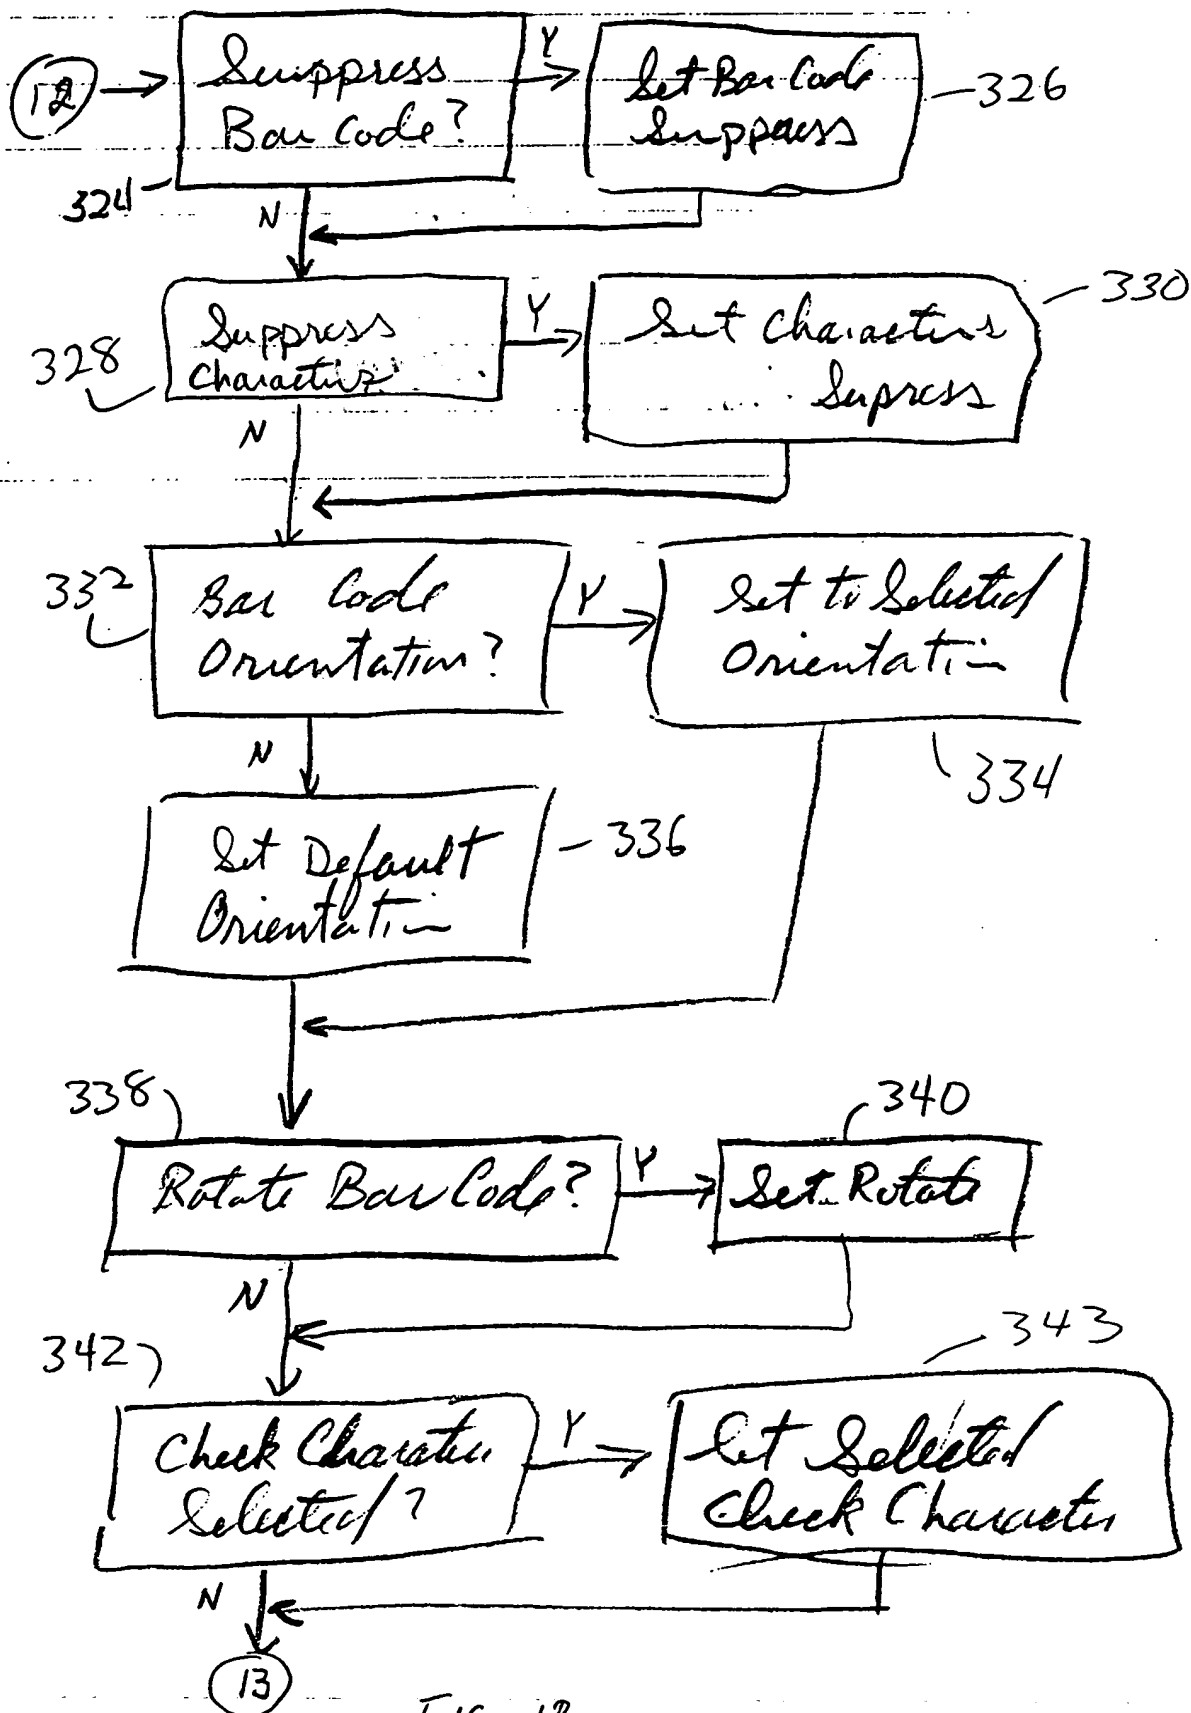 12
Suppress
Bar Code?
324
Y
Set Bar Code
Suppress
326
N
Suppress
Characters
328
Y
Set Characters
Supress
330
N
Bar Code
Orientation?
332
Y
Set to Selected
Orientation
334
N
Set Default
Orientation
336
338
Rotate Bar Code?
Y
340
Set Rotate
N
342
Check Charater
Selected?
Y
343
Set Selected
Check Character
N
13